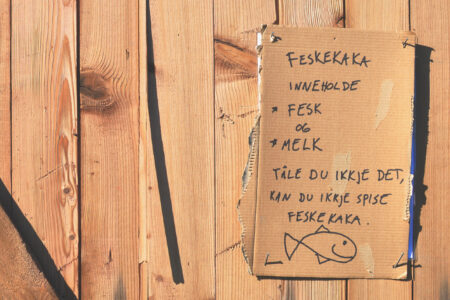 FESKEKAKA
INNEHOLDE
* FESK
OG
* MELK
TÅLE DU IKKJE DET,
KAN DU IKKJE SPISE
FESKEKAKA.